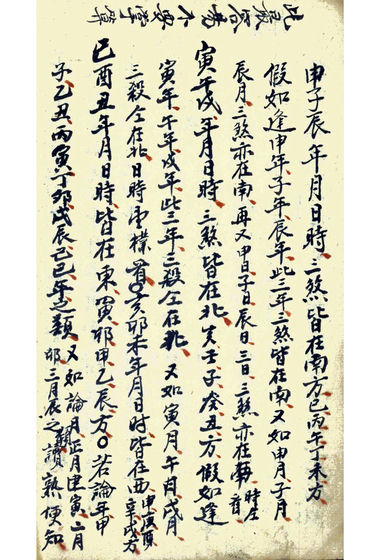 申子辰年月日時、三煞皆在南方巳丙午丁未方、
假如逢申年、子年、辰年、此三年、三煞皆在南、又如申月、子月、
辰月、三煞亦在南、再又甲日、子日、辰日、三日、三煞亦在南、時
寅午戌年月日時、三煞皆在北、亥壬子癸丑方、假如逢
寅年、午年、戌年、此三年、三殺仝在北、又如寅月、午月、戌月、
三殺仝在北、日時
亥卯未年月日時皆在西
巳酉丑年月日時、皆在東、寅卯甲乙辰方、若論年甲
子、乙丑、丙寅、丁卯、戊辰、己巳年之類、又如論月、正月建寅、二月
卯、三月辰之類、讀熟便知